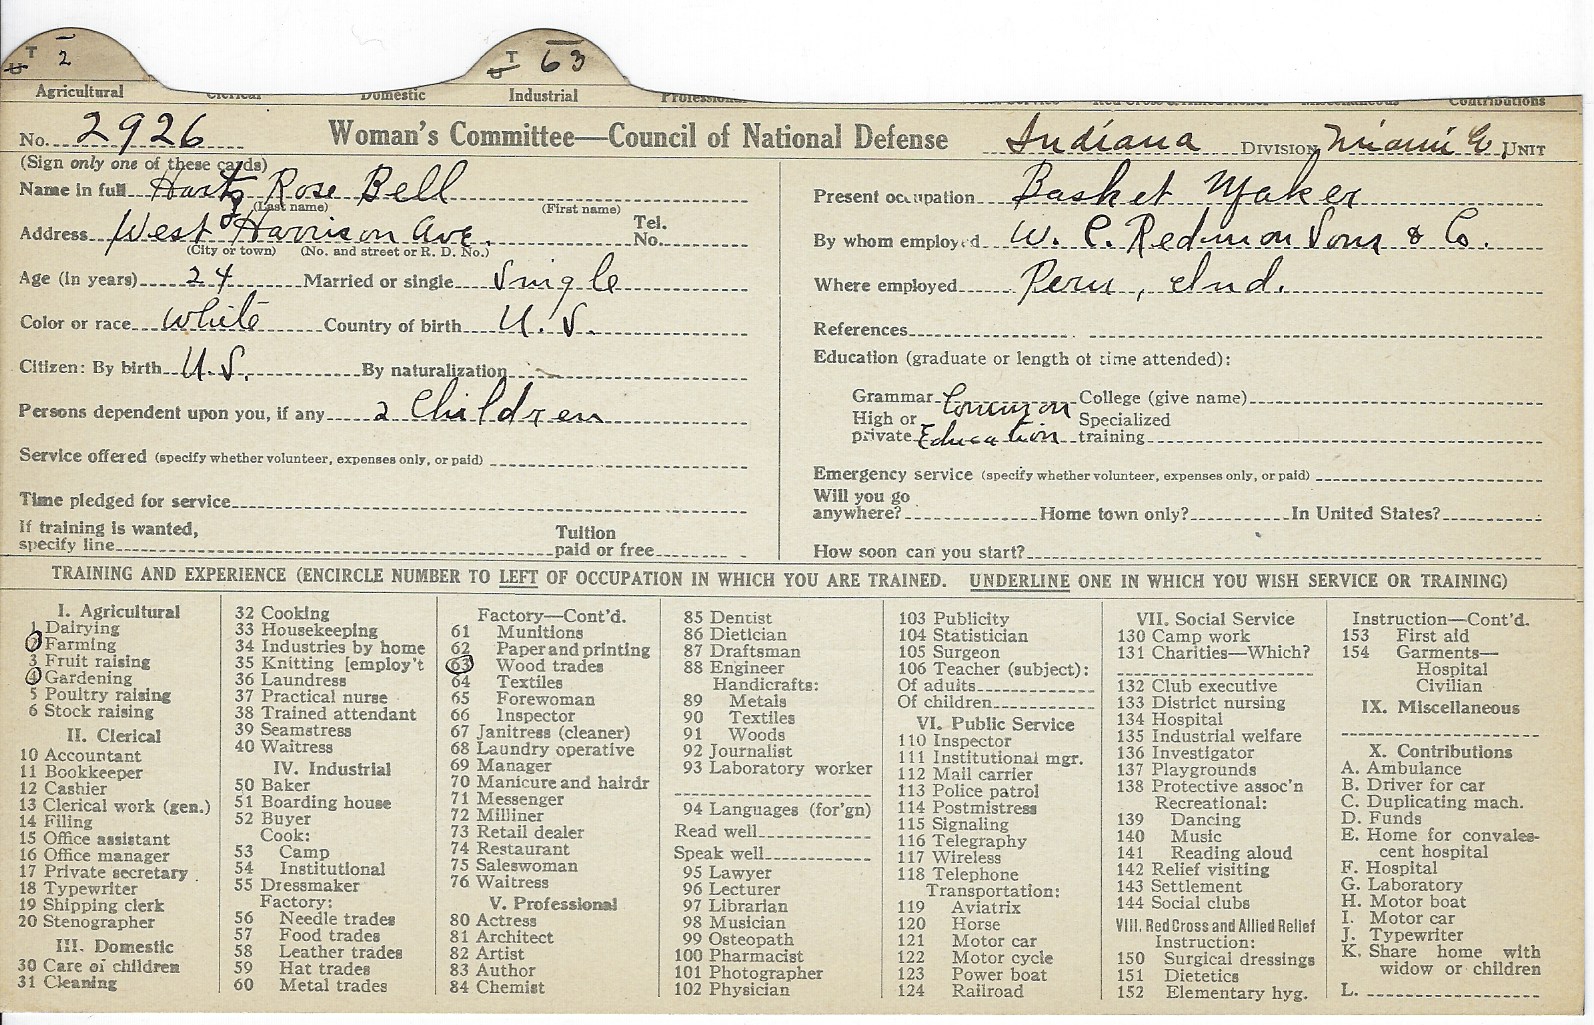 T
U 2
T
U 63
Agricultural Clerical Domestic Industrial Professional Contributions
No. 2926 Woman's Committee—Council of National Defense Indiana DIVISION, Miami Co. UNIT
(Sign only one of these cards)
Name in full Hartz Rose Bell
(Last name) (First name)
Address West Harrison Ave. Tel. No.
(City or town) (No. and street or R. D. No.)
Age (in years) 24 Married or single Single
Color or race White Country of birth U.S.
Citizen: By birth U.S. By naturalization
Persons dependent upon you, if any 2 Children
Service offered (specify whether volunteer, expenses only, or paid)
Time pledged for service
If training is wanted, specify line Tuition paid or free
Present occupation Basket Maker
By whom employed W. C. Redmon Sons & Co.
Where employed Peru, Ind.
References
Education (graduate or length of time attended):
Grammar Common College (give name)
High or private Education Specialized training
Emergency service (specify whether volunteer, expenses only, or paid)
Will you go anywhere? Home town only? In United States?
How soon can you start?
TRAINING AND EXPERIENCE (ENCIRCLE NUMBER TO LEFT OF OCCUPATION IN WHICH YOU ARE TRAINED. UNDERLINE ONE IN WHICH YOU WISH SERVICE OR TRAINING)
I. Agricultural
1 Dairying
2 Farming
3 Fruit raising
4 Gardening
5 Poultry raising
6 Stock raising
II. Clerical
10 Accountant
11 Bookkeeper
12 Cashier
13 Clerical work (gen.)
14 Filing
15 Office assistant
16 Office manager
17 Private secretary
18 Typewriter
19 Shipping clerk
20 Stenographer
III. Domestic
30 Care of children
31 Cleaning
32 Cooking
33 Housekeeping
34 Industries by home
35 Knitting [employ't
36 Laundress
37 Practical nurse
38 Trained attendant
39 Seamstress
40 Waitress
IV. Industrial
50 Baker
51 Boarding house
52 Buyer
Cook:
53 Camp
54 Institutional
55 Dressmaker
Factory:
56 Needle trades
57 Food trades
58 Leather trades
59 Hat trades
60 Metal trades
Factory—Cont'd.
61 Munitions
62 Paper and printing
63 Wood trades
64 Textiles
65 Forewoman
66 Inspector
67 Janitress (cleaner)
68 Laundry operative
69 Manager
70 Manicure and hairdr
71 Messenger
72 Milliner
73 Retail dealer
74 Restaurant
75 Saleswoman
76 Waitress
V. Professional
80 Actress
81 Architect
82 Artist
83 Author
84 Chemist
85 Dentist
86 Dietician
87 Draftsman
88 Engineer
Handicrafts:
89 Metals
90 Textiles
91 Woods
92 Journalist
93 Laboratory worker
94 Languages (for'gn)
Read well
Speak well
95 Lawyer
96 Lecturer
97 Librarian
98 Musician
99 Osteopath
100 Pharmacist
101 Photographer
102 Physician
103 Publicity
104 Statistician
105 Surgeon
106 Teacher (subject):
Of adults
Of children
VI. Public Service
110 Inspector
111 Institutional mgr.
112 Mail carrier
113 Police patrol
114 Postmistress
115 Signaling
116 Telegraphy
117 Wireless
118 Telephone
Transportation:
119 Aviatrix
120 Horse
121 Motor car
122 Motor cycle
123 Power boat
124 Railroad
VII. Social Service
130 Camp work
131 Charities—Which?
132 Club executive
133 District nursing
134 Hospital
135 Industrial welfare
136 Investigator
137 Playgrounds
138 Protective assoc'n
Recreational:
139 Dancing
140 Music
141 Reading aloud
142 Relief visiting
143 Settlement
144 Social clubs
VIII. Red Cross and Allied Relief
Instruction:
150 Surgical dressings
151 Dietetics
152 Elementary hyg.
Instruction—Cont'd.
153 First aid
154 Garments—
Hospital
Civilian
IX. Miscellaneous
X. Contributions
A. Ambulance
B. Driver for car
C. Duplicating mach.
D. Funds
E. Home for convales-
cent hospital
F. Hospital
G. Laboratory
H. Motor boat
I. Motor car
J. Typewriter
K. Share home with
widow or children
L.